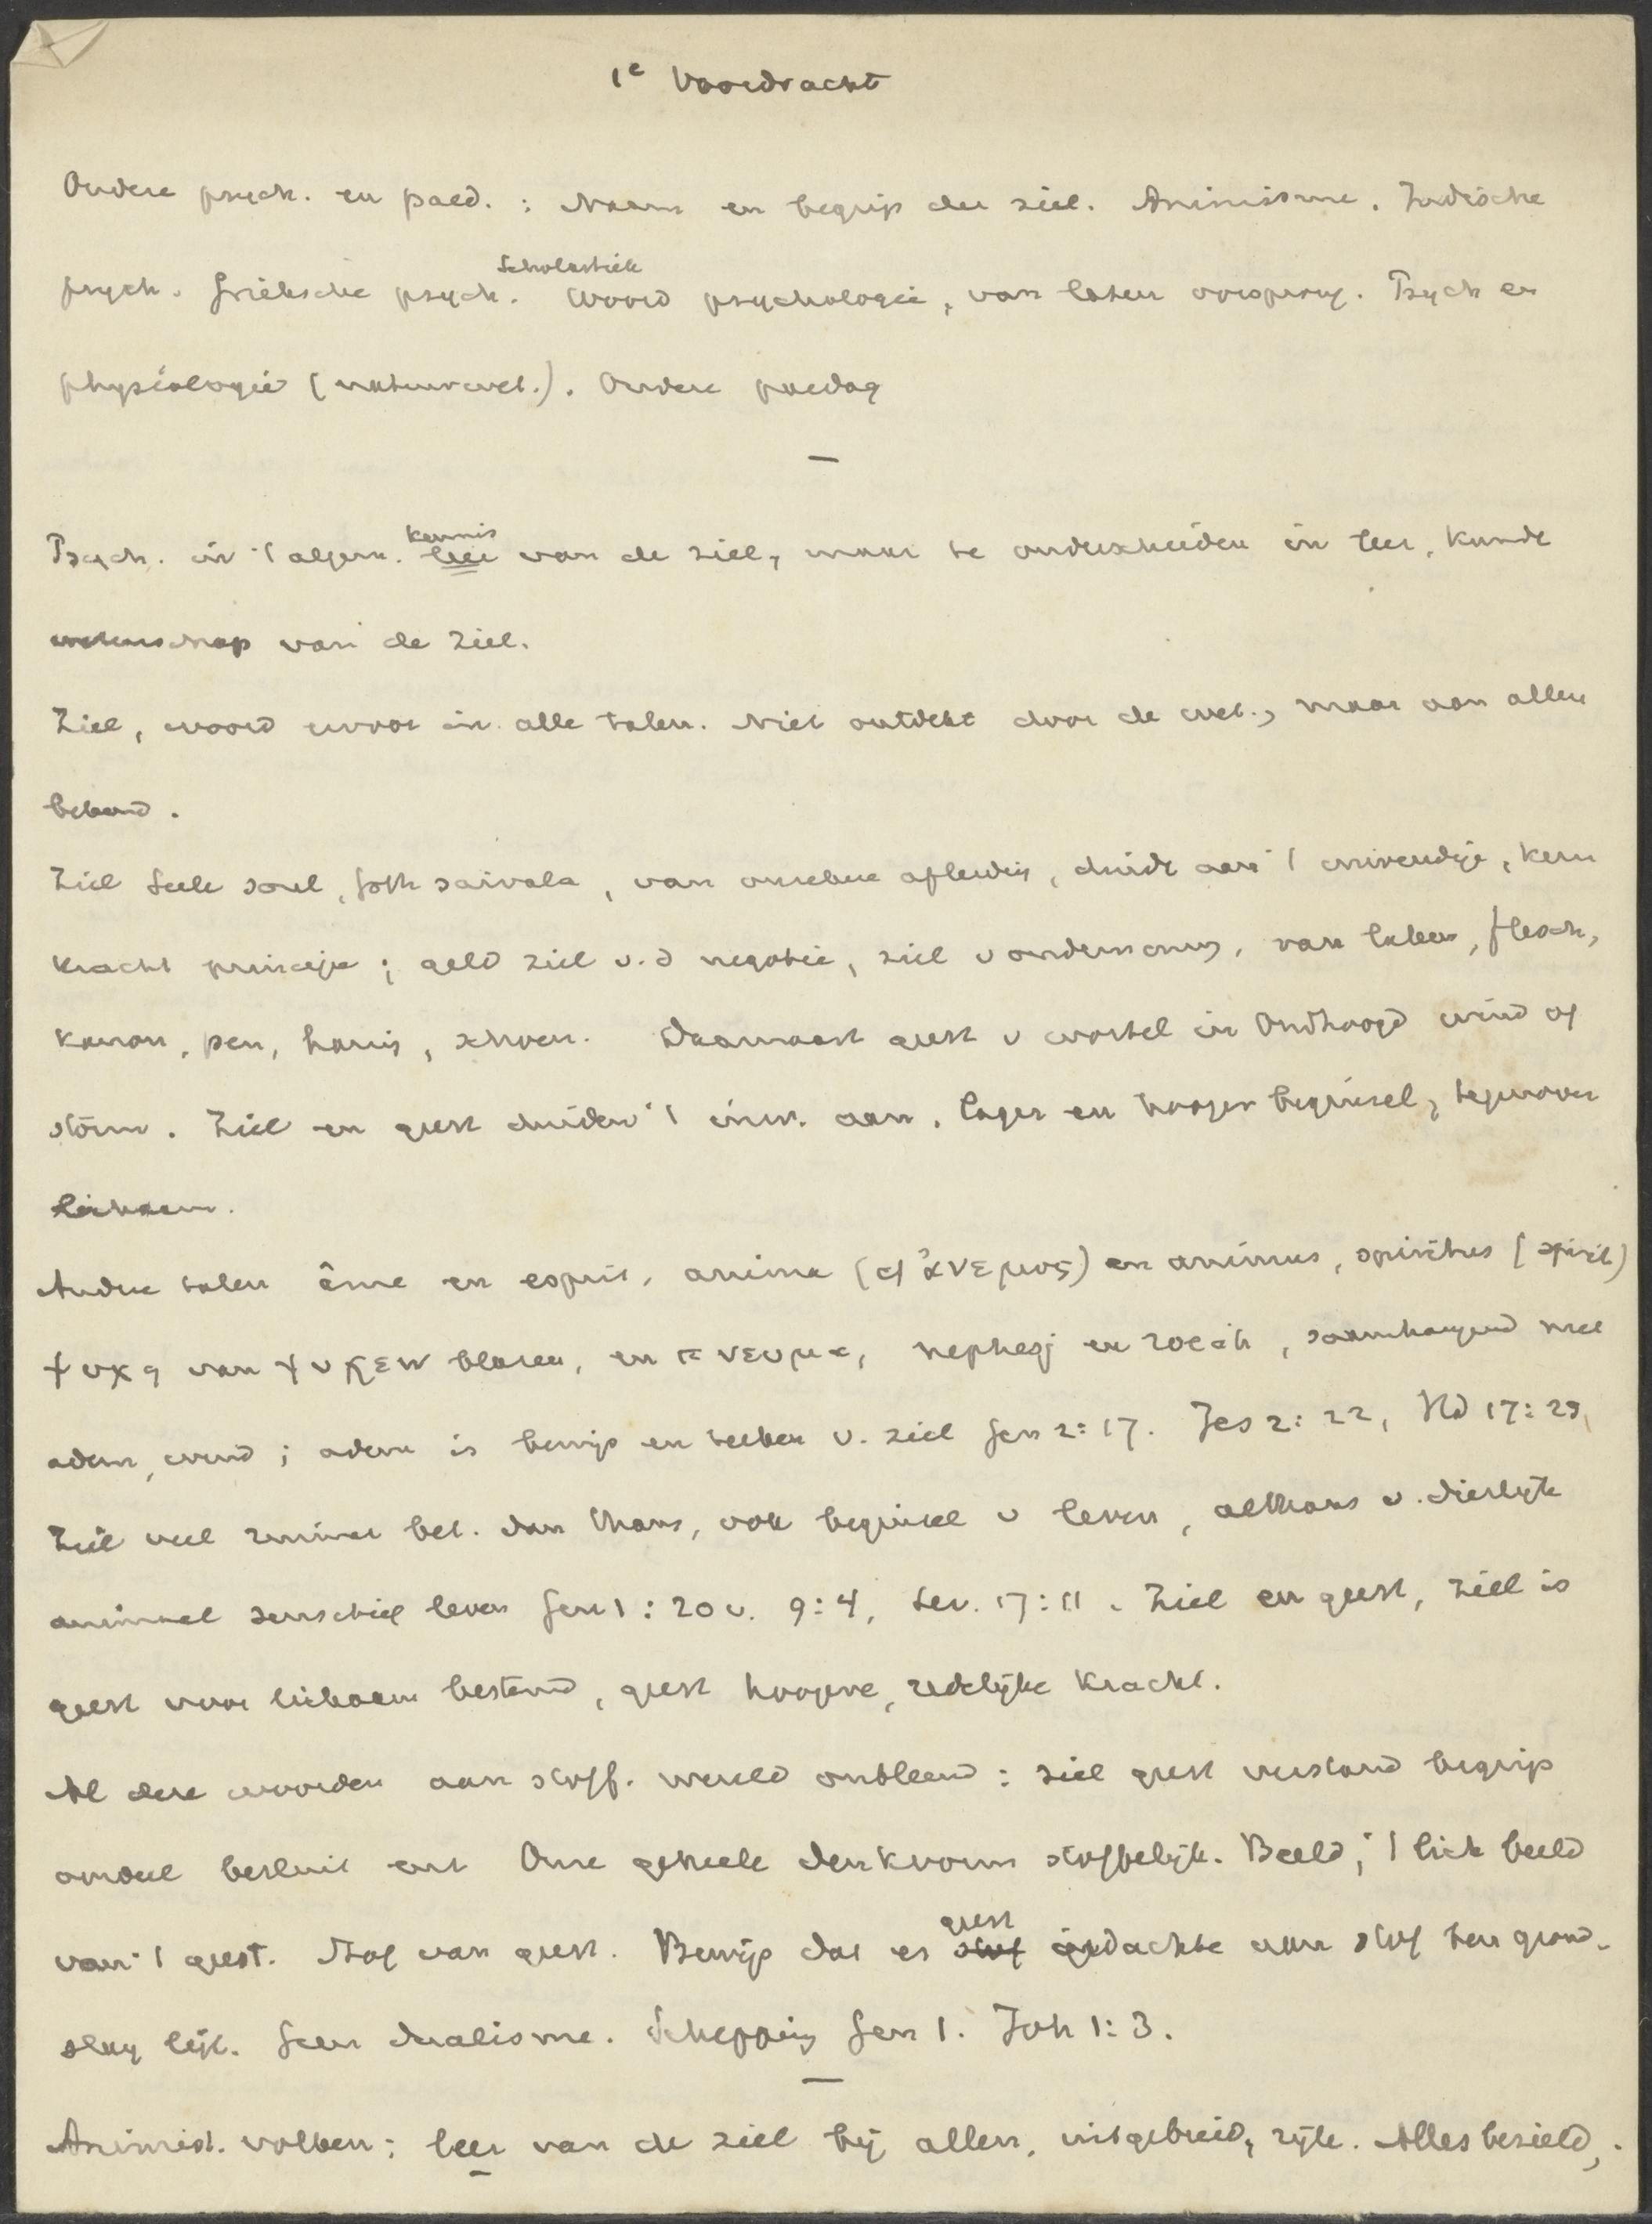 1e Voordracht
Oudere psych. en paed. : Naam en begrip der ziel. Animisme. Indische
Scholastiek
psych. Grieksche psych. Woord psychologie, van lateren oorsprong. Psych en
physiologie (natuurwet.). Oudere paedag
—
kennis
Psych. in 't algem. leer van de ziel, maar te onderscheiden in leer, kunde
wetenschap van de ziel.
Ziel, woord ervoor in alle talen. Niet ontdekt door de wet., maar aan allen
bekend.
Ziel Seele soul, Goth saivala, van onzekere afleiding, duidt aan 't inwendige, kern
kracht principe; geld ziel v.d negotie, ziel v onderneming, van laken, flesch,
kanon, pen, haring, schoen. Daarnaast geest v wortel in Oudhoogd wind of
storm. Ziel en geest duiden 't inw. aan, lager en hooger beginsel, tegenover
lichaam.
Andere talen âme en esprit, anima (cf ἄνεμος) en animus, spiritus (spirit)
ψυχη van ψυχειν blazen, en πνευμα, nephesj en roeach, saamhangend met
adem, wind; adem is bewijs en teeken v. ziel Gen 2:17. Jes 2:22, Hd 17:25,
Ziel veel ruimer bet. dan thans, ook beginsel v leven, althans v. dierlijk
animaal sensitief leven Gen 1:20v. 9:4, Lev. 17:11. Ziel en geest, ziel is
geest voor lichaam bestemd, geest hoogere, redelijke kracht.
Al deze woorden aan stoff. wereld ontleend: ziel geest verstand begrip
oordeel besluit enz Onze geheele denkvorm stoffelijk. Beeld, 't lich beeld
geest
van 't geest. Stof van geest. Bewijs dat er stof gedachte aan stof ten grond-
slag ligt. Geen dualisme. Schepping Gen 1. Joh 1:3.
—
Animist. volken: leer van de ziel bij allen, uitgebreid, rijk. Alles bezield,